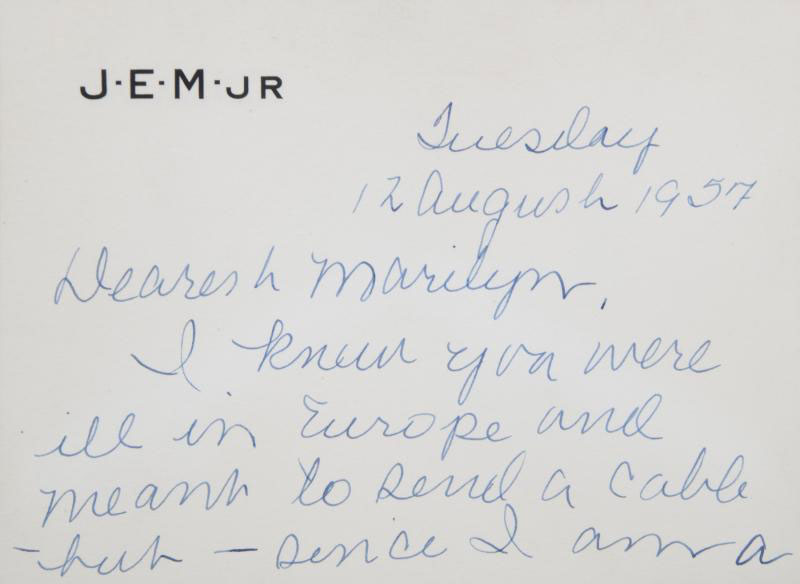 J·E·M·JR
Tuesday
12 August 1957
Dearest Marilyn,
I knew you were
ill in Europe and
meant to send a cable
- but - since I am a